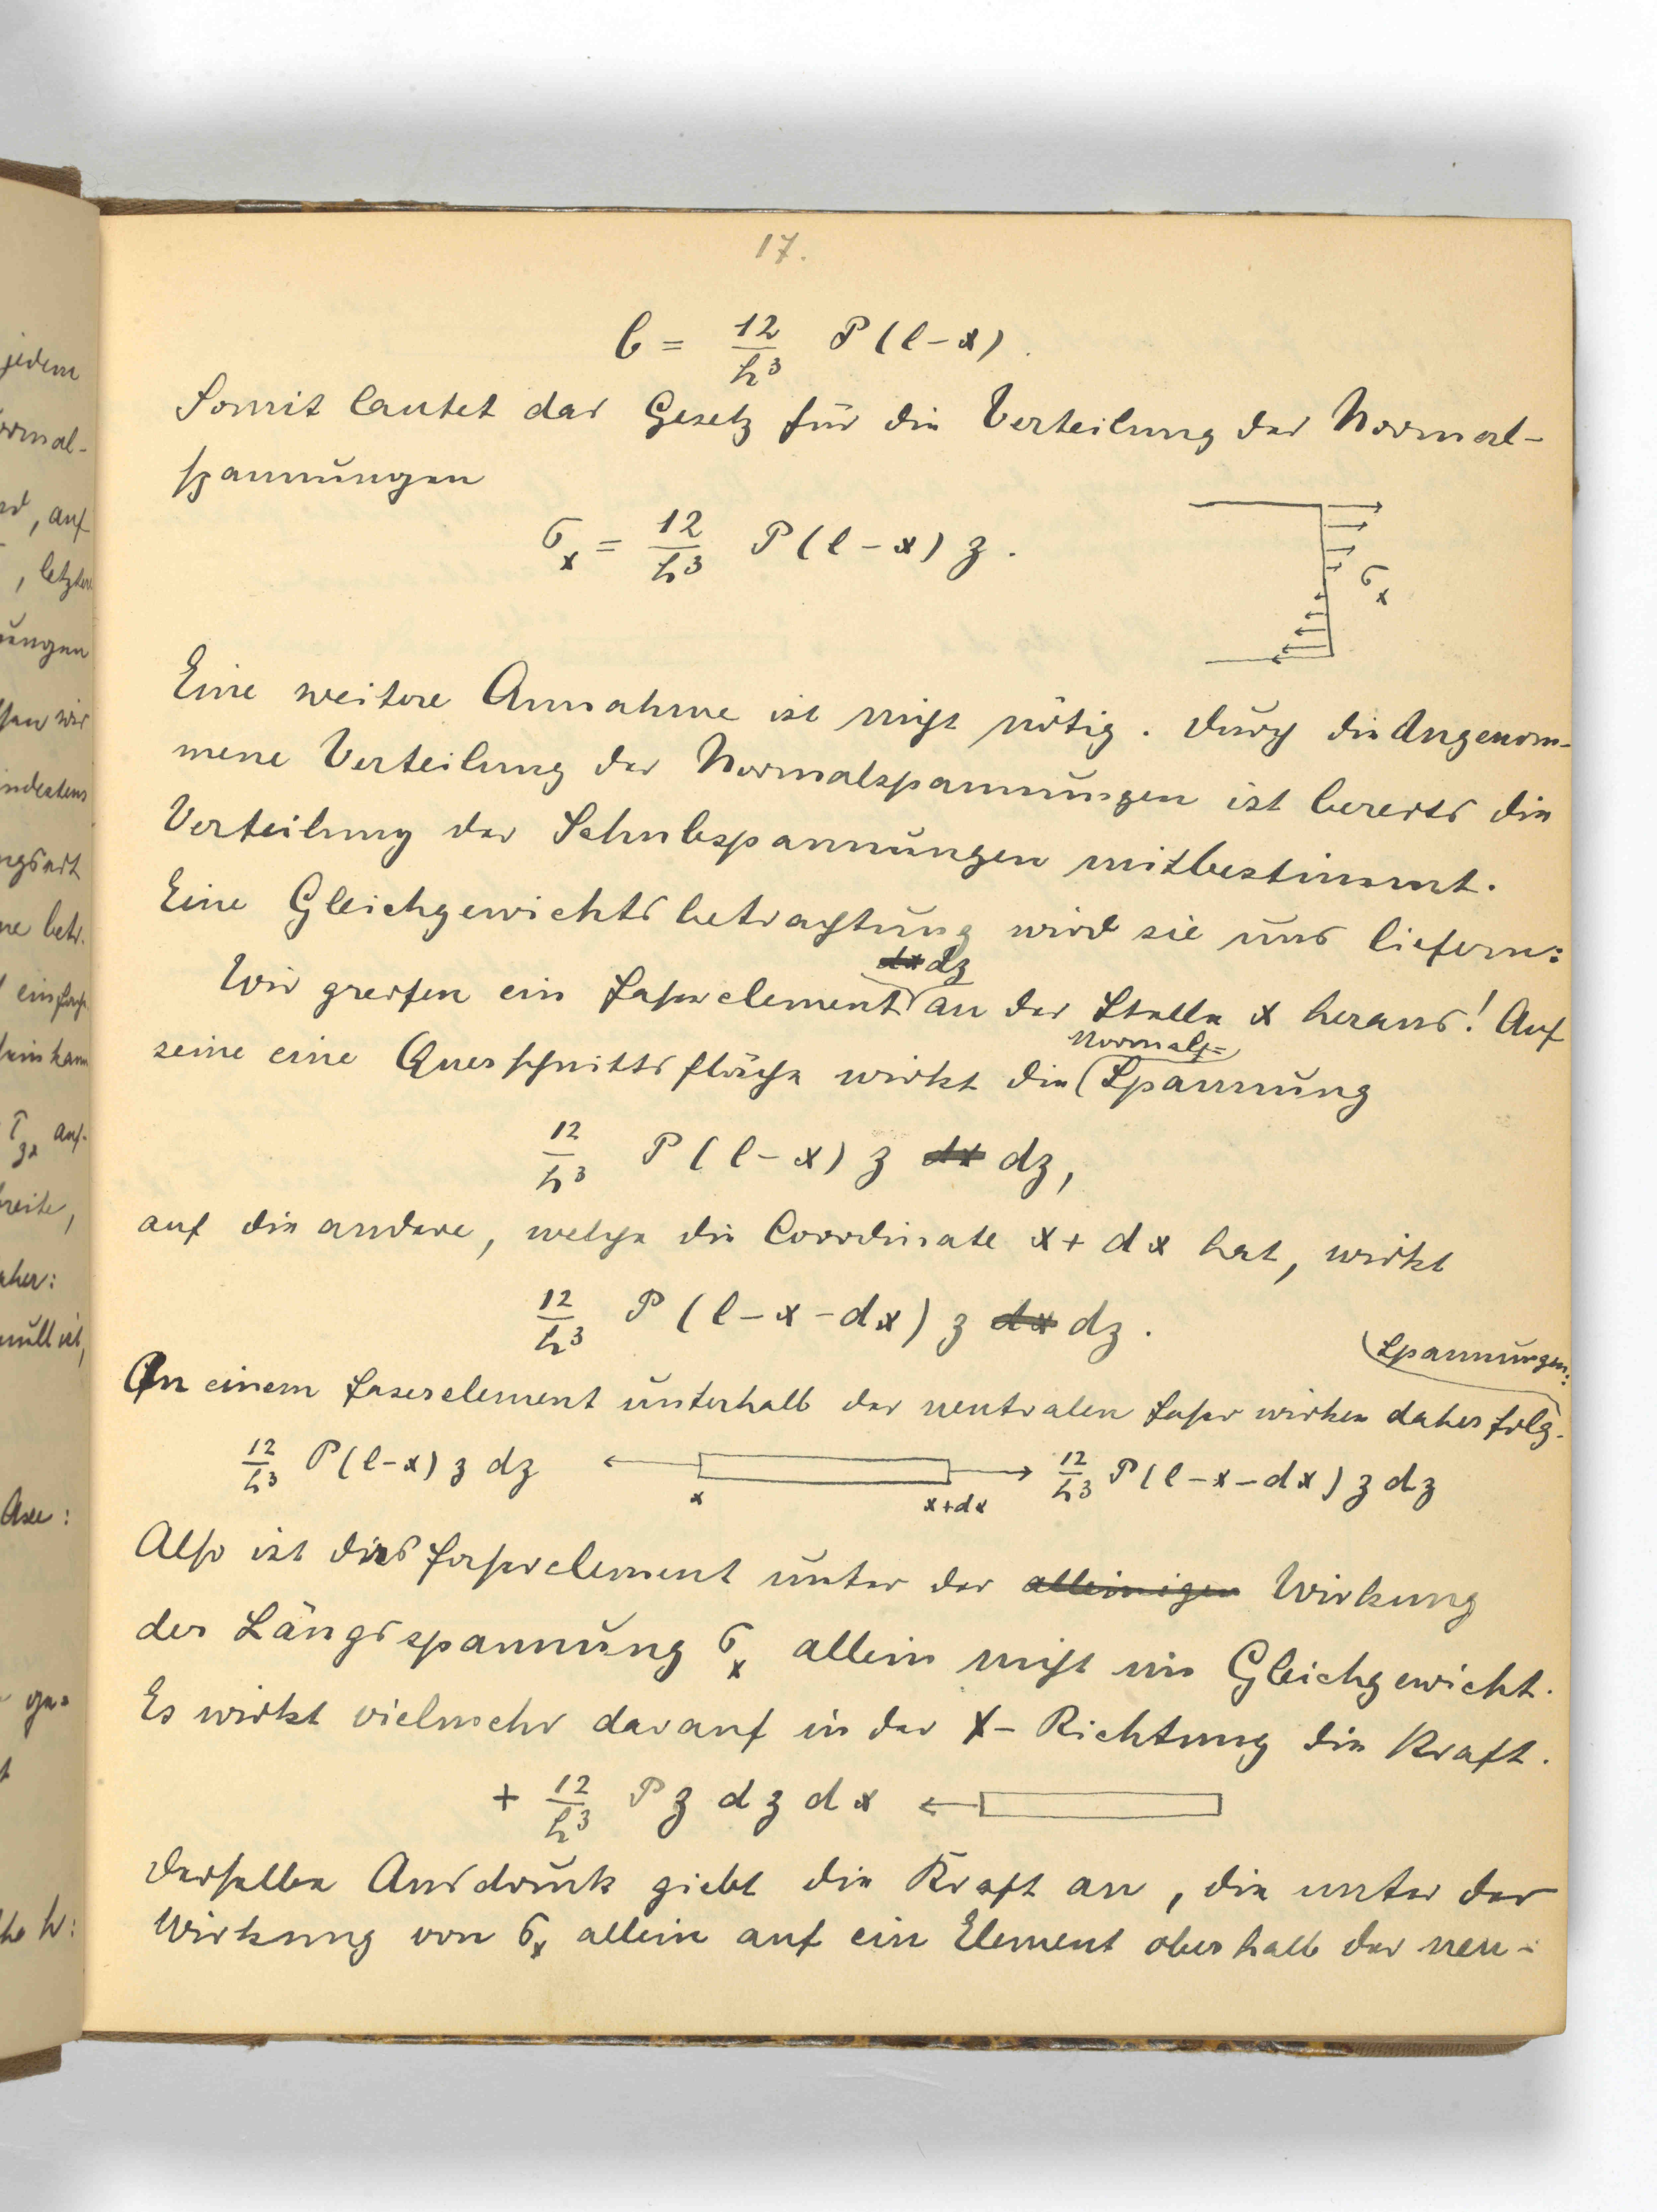 17.
b = 12/h³ P(l-x).
Somit lautet das Gesetz für die Verteilung der Normal-
spannungen
σx = 12/h³ P(l-x) z.
σx
Eine weitere Annahme ist nicht nötig. Durch die Angenom-
mene Verteilung der Normalspannungen ist bereits die
Verteilung der Schubspannungen mitbestimmt.
Eine Gleichgewichtsbetrachtung wird sie uns liefern:
dx dz
Wir greifen ein Faserelement an der Stelle x heraus! Auf
Normal=
seine eine Querschnittsfläche wirkt die Spannung
12/h³ P(l-x) z dx dz,
auf die andere, welche die Coordinate x+dx hat, wirkt
12/h³ P(l-x-dx) z dx dz.
Spannungen:
An einem Faserelement unterhalb der neutralen Faser wirken daher folg.
12/h³ P(l-x) z dz x x+dx 12/h³ P(l-x-dx) z dz
Also ist dies Faserelement unter der alleinigen Wirkung
der Längsspannung σx allein nicht im Gleichgewicht.
Es wirkt vielmehr darauf in der x-Richtung die Kraft.
+ 12/h³ P z dz dx
Derselbe Ausdruck giebt die Kraft an, die unter der
Wirkung von σx allein auf ein Element oberhalb der neu-
jedem
ormal-
, auf
, letztere
ungen
wir
indestens
ne betr.
einfach
sein kann
auf-
breite,
aher:
null ist,
Axe:
h: